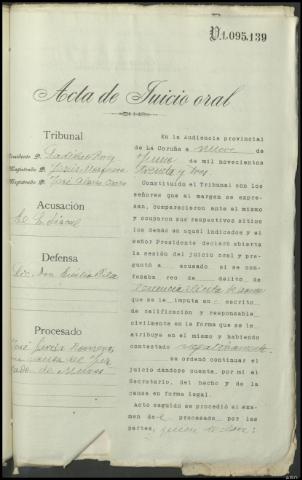 D.1.095,139
Acta de Juicio oral
Tribunal
Presidente D.
Magistrado D.
Magistrado D. José
Acusación
Defensa
Don
Procesado
José
En la Audiencia provincial
de La Coruña a nueve de
Junio de mil novecientos
treinta y tres
Constituido el Tribunal con los
señores que al margen se expre-
san, comparecieron ante el mismo
y ocuparon sus respectivos sitios
los demás en aquél indicados y el
señor Presidente declaró abierta
la sesión del juicio oral y pre-
guntó a acusado si se con-
fesaba reo de delito de
tenencia ilícita de armas
que se le imputa en escrito
de calificación y responsable
civilmente en la forma que se le
atribuye en el mismo y habiendo
contestado negativamente
se ordenó continuar el
juicio dándose cuenta, por mí el
Secretario, del hecho y de la
causa en forma legal.
Acto seguido se procedió al exa-
men del procesado por las
partes, quien